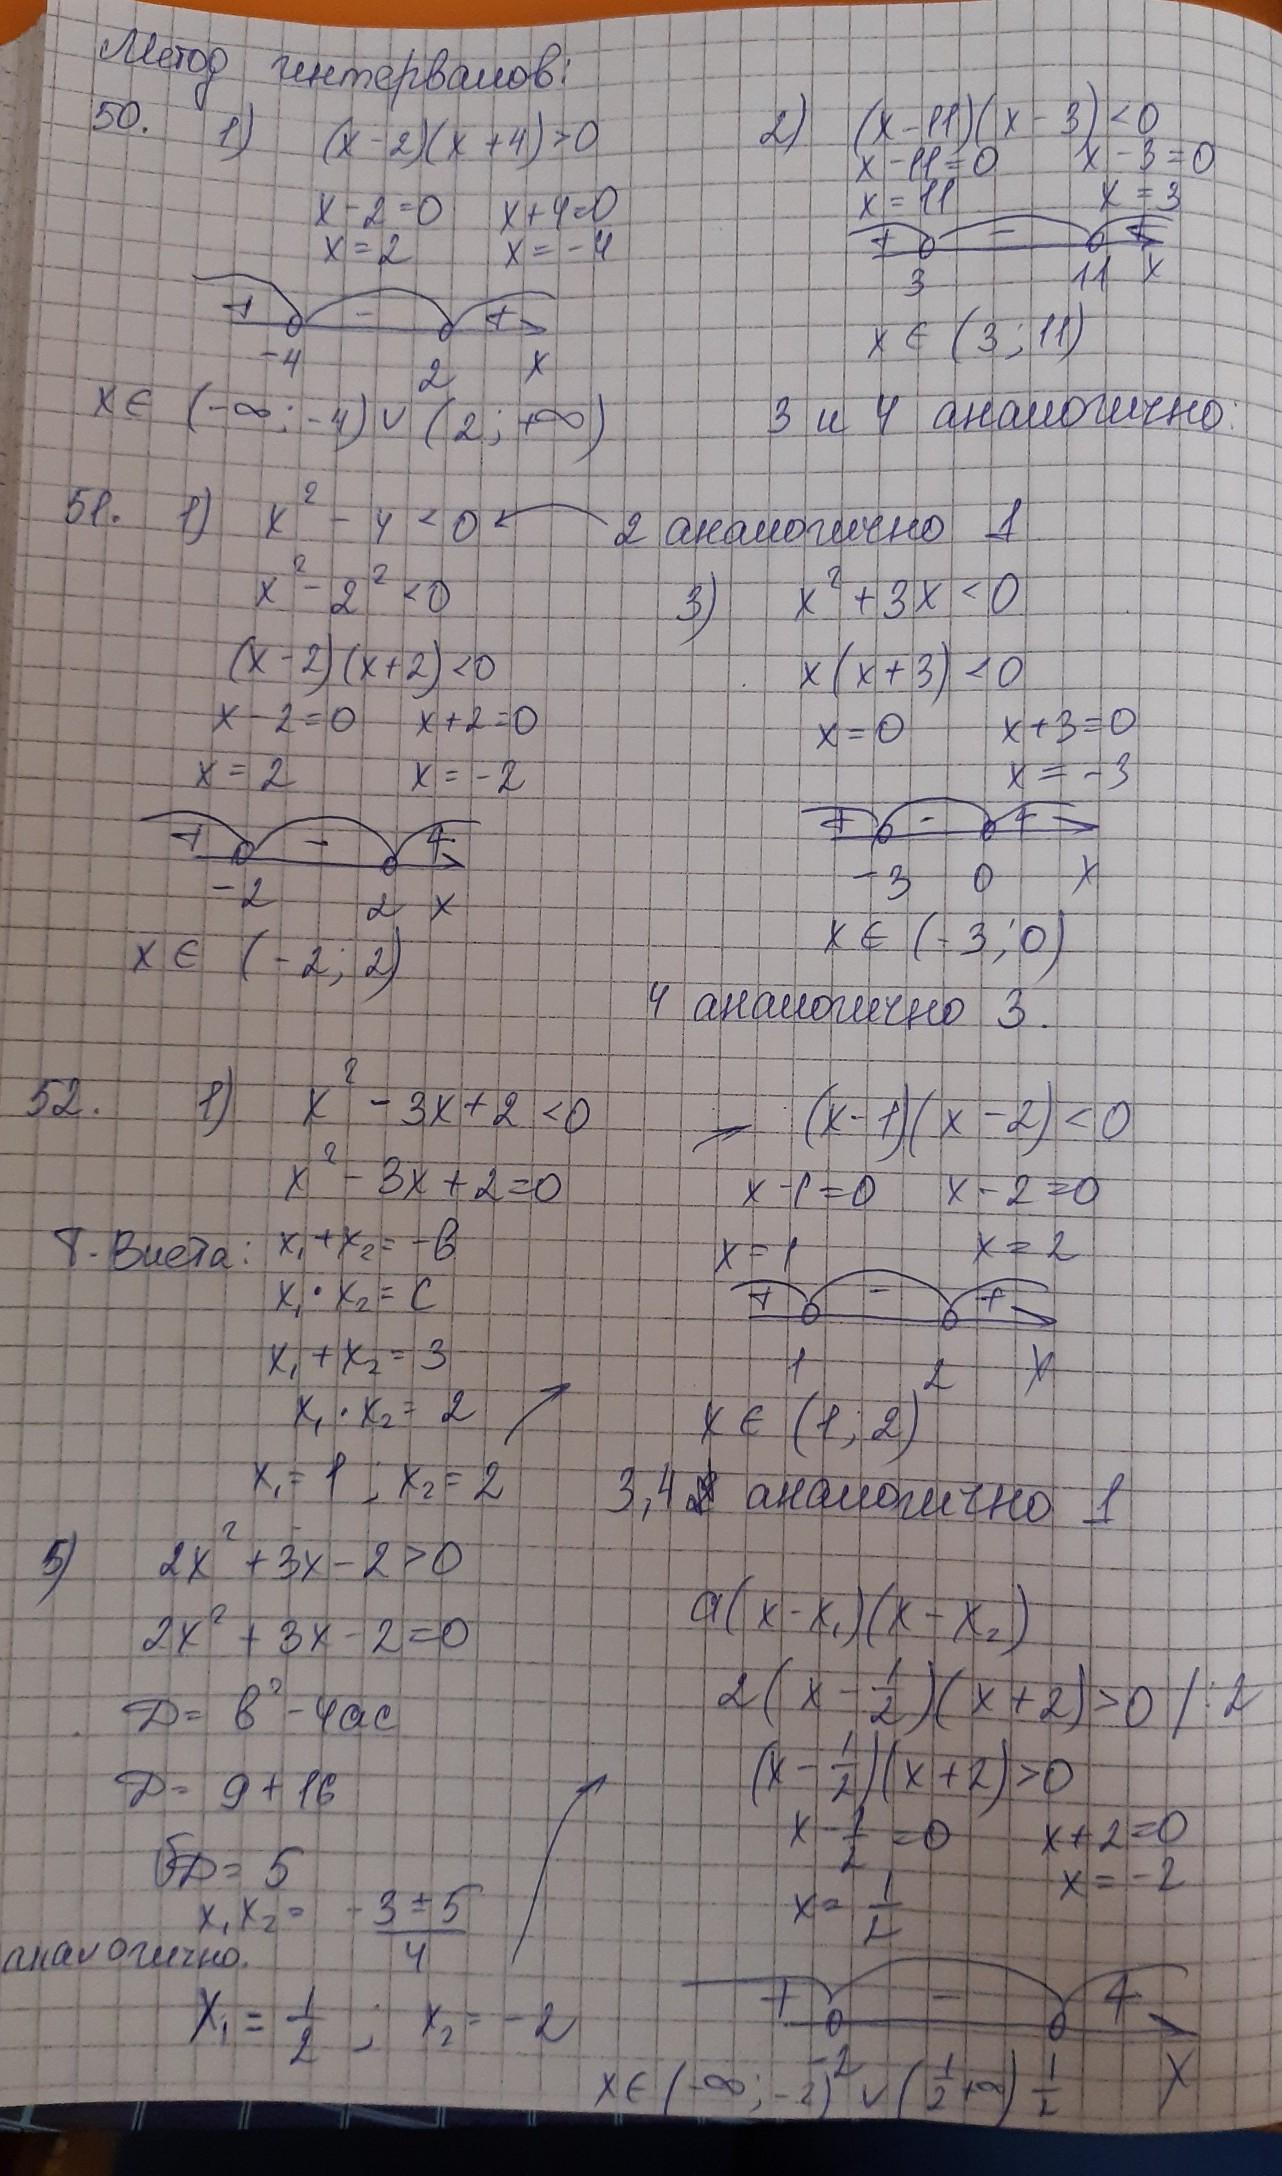 Метод интервалов:
50. 1) (x-2)(x+4)>0
x-2=0 x+4=0
x=2 x=-4
+ - +
-4 2 x
x∈ (-∞; -4) ∪ (2; +∞)
2) (x-11)(x-3)<0
x-11=0 x-3=0
x=11 x=3
+ - +
3 11 x
x∈ (3; 11)
3 и 4 аналогично:
51. 1) x²-4<0 ← 2 аналогично 1
x²-2²<0
(x-2)(x+2)<0
x-2=0 x+2=0
x=2 x=-2
+ - +
-2 2 x
x∈ (-2; 2)
3) x²+3x<0
x(x+3)<0
x=0 x+3=0
x=-3
+ - +
-3 0 x
x∈ (-3; 0)
4 аналогично 3.
52. 1) x²-3x+2<0
x²-3x+2=0
Т. Виета: x₁+x₂=-в
x₁·x₂=c
x₁+x₂=3
x₁·x₂=2
x₁=1; x₂=2
→ (x-1)(x-2)<0
x-1=0 x-2=0
x=1 x=2
+ - +
1 2 x
x∈ (1; 2)
3,4 аналогично 1
5) 2x²+3x-2>0
2x²+3x-2=0
Д=в²-4ac
Д=9+16
√Д=5
x₁x₂= -3±5/4
аналогично.
x₁=1/2; x₂=-2
a(x-x₁)(x-x₂)
2(x-1/2)(x+2)>0 /:2
(x-1/2)(x+2)>0
x-1/2=0 x+2=0
x=1/2 x=-2
+ - +
-2 1/2 x
x∈(-∞; -2) ∪ (1/2 +∞)